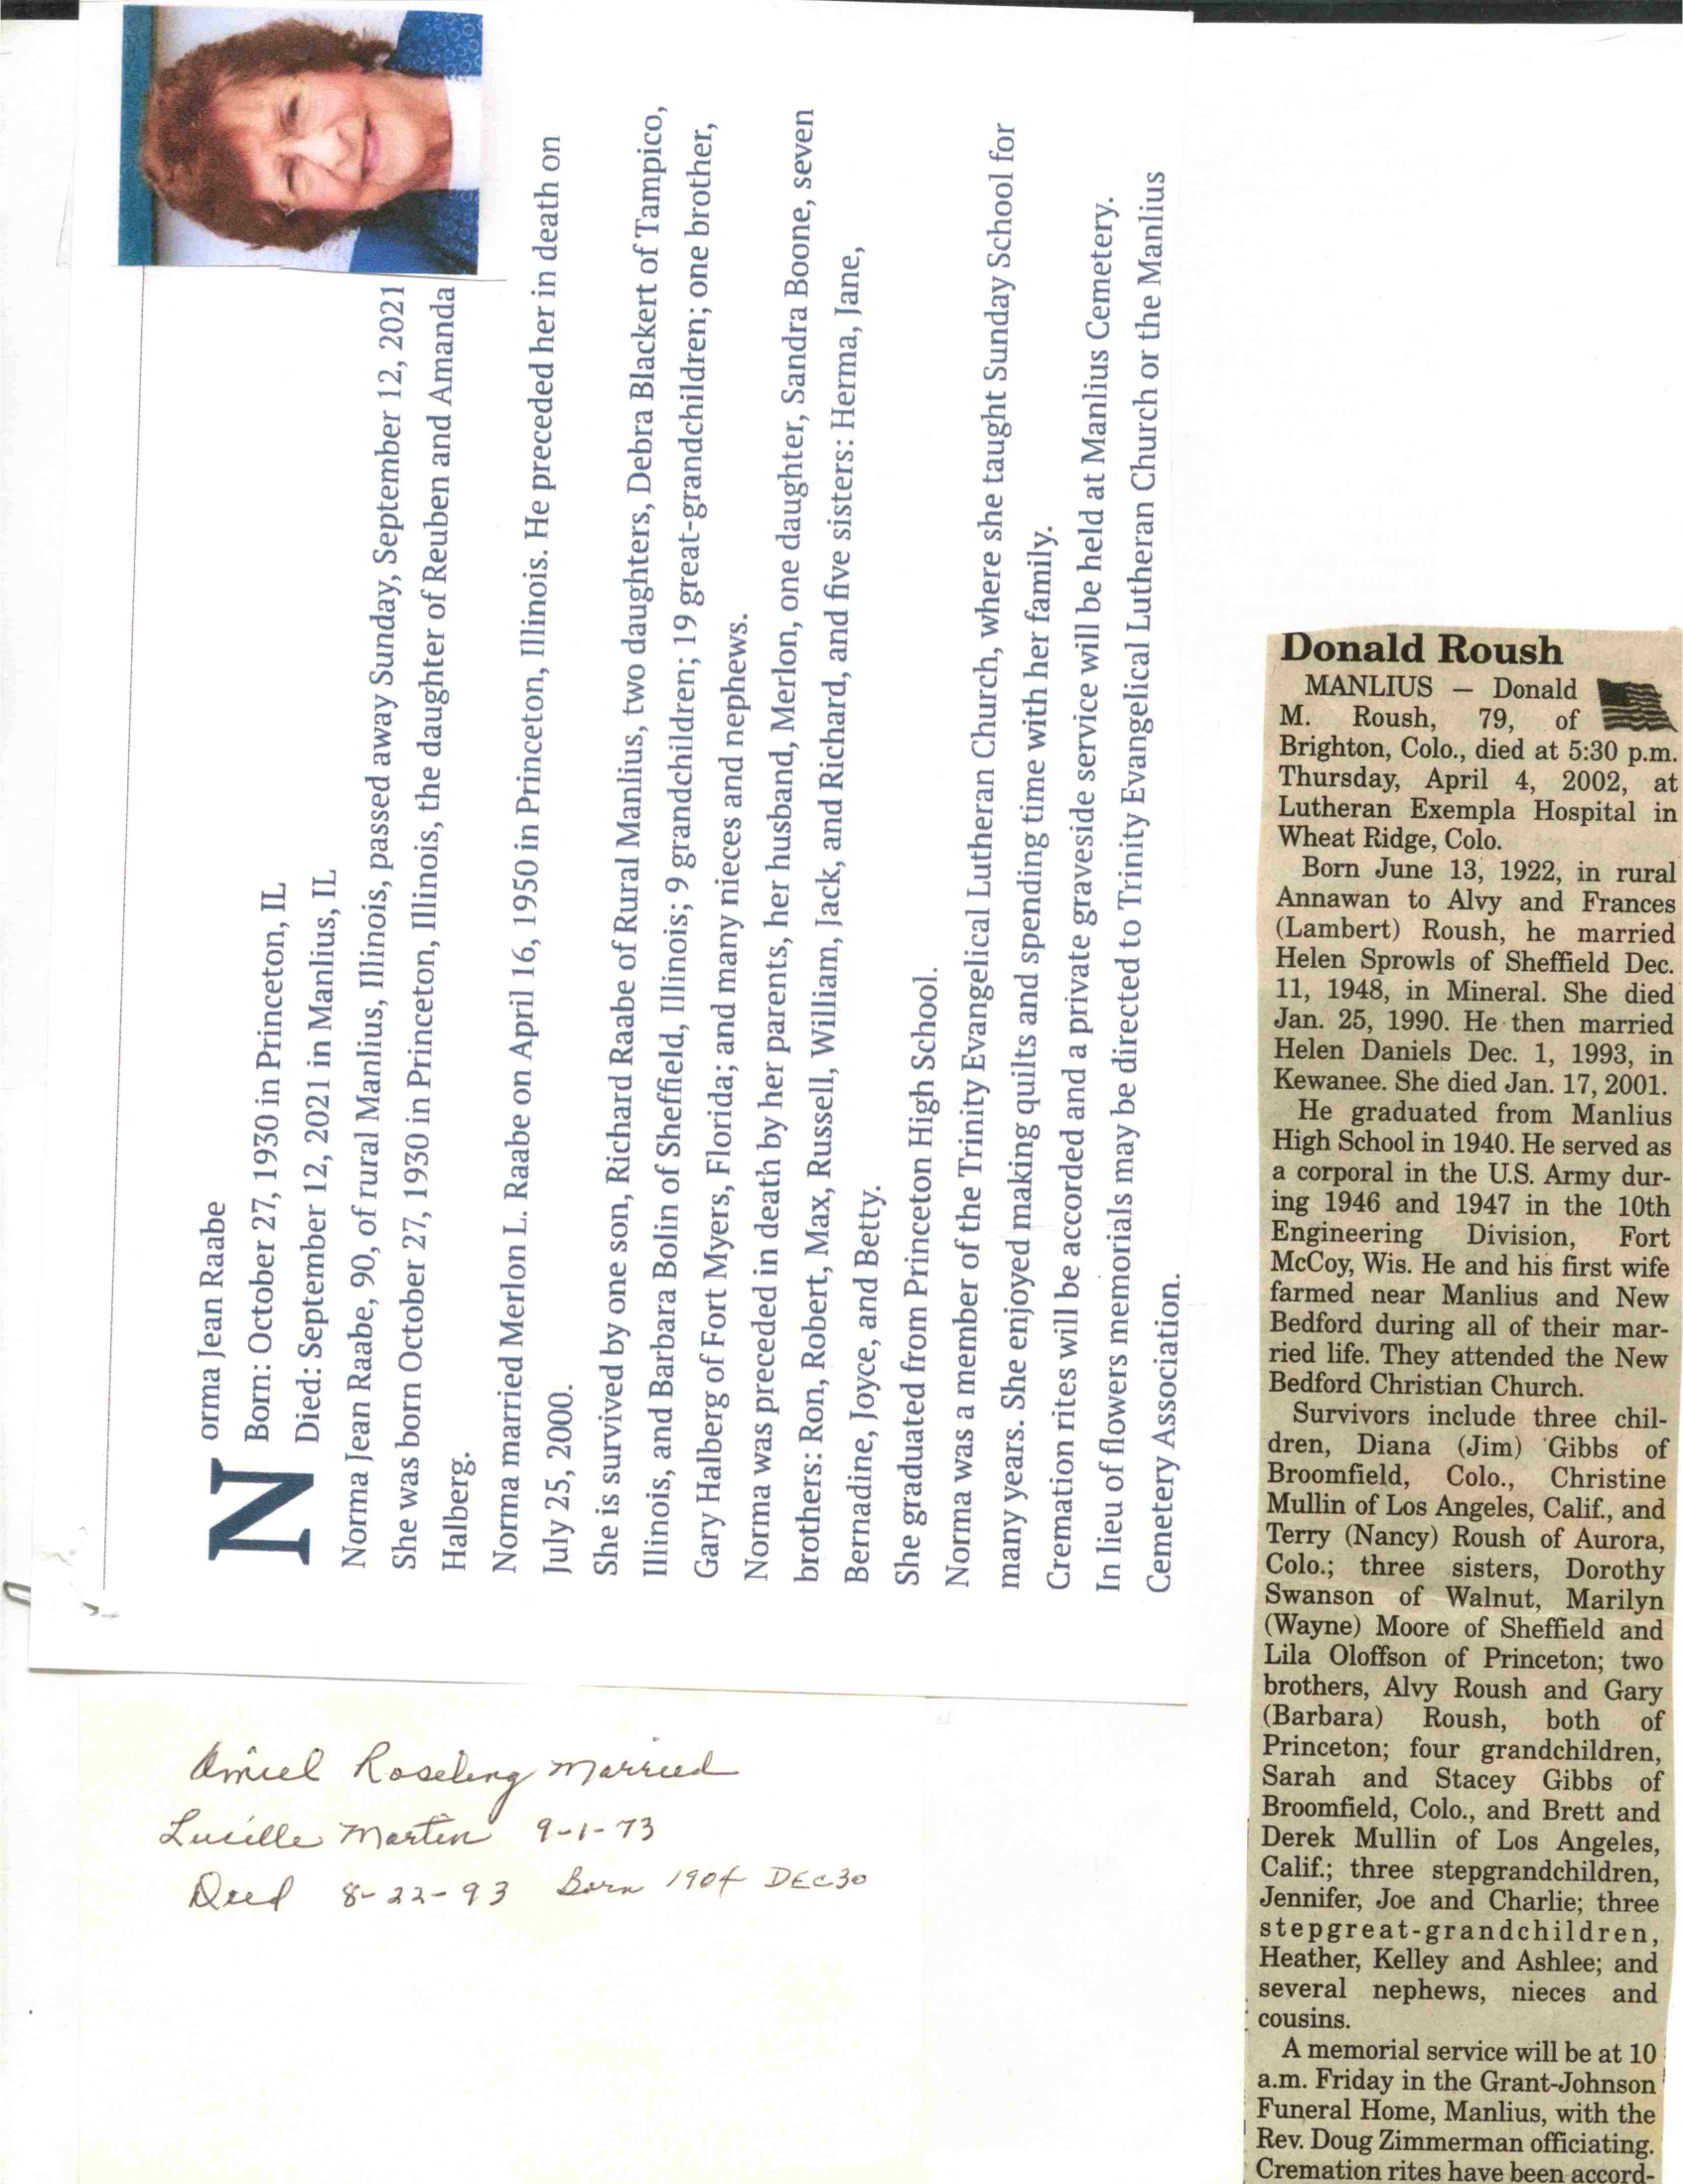 Norma Jean Raabe
Born: October 27, 1930 in Princeton, IL
Died: September 12, 2021 in Manlius, IL
Norma Jean Raabe, 90, of rural Manlius, Illinois, passed away Sunday, September 12, 2021
She was born October 27, 1930 in Princeton, Illinois, the daughter of Reuben and Amanda
Halberg.
Norma married Merlon L. Raabe on April 16, 1950 in Princeton, Illinois. He preceded her in death on
July 25, 2000.
She is survived by one son, Richard Raabe of Rural Manlius, two daughters, Debra Blackert of Tampico,
Illinois, and Barbara Bolin of Sheffield, Illinois; 9 grandchildren; 19 great-grandchildren; one brother,
Gary Halberg of Fort Myers, Florida; and many nieces and nephews.
Norma was preceded in death by her parents, her husband, Merlon, one daughter, Sandra Boone, seven
brothers: Ron, Robert, Max, Russell, William, Jack, and Richard, and five sisters: Herma, Jane,
Bernadine, Joyce, and Betty.
She graduated from Princeton High School.
Norma was a member of the Trinity Evangelical Lutheran Church, where she taught Sunday School for
many years. She enjoyed making quilts and spending time with her family.
Cremation rites will be accorded and a private graveside service will be held at Manlius Cemetery.
In lieu of flowers memorials may be directed to Trinity Evangelical Lutheran Church or the Manlius
Cemetery Association.
Amiel Roseling Married
Lucille Martin 9-1-73
Died 8-22-93 Born 1904 DEC 30
Donald Roush
MANLIUS — Donald
M. Roush, 79, of
Brighton, Colo., died at 5:30 p.m.
Thursday, April 4, 2002, at
Lutheran Exempla Hospital in
Wheat Ridge, Colo.
Born June 13, 1922, in rural
Annawan to Alvy and Frances
(Lambert) Roush, he married
Helen Sprowls of Sheffield Dec.
11, 1948, in Mineral. She died
Jan. 25, 1990. He then married
Helen Daniels Dec. 1, 1993, in
Kewanee. She died Jan. 17, 2001.
He graduated from Manlius
High School in 1940. He served as
a corporal in the U.S. Army dur-
ing 1946 and 1947 in the 10th
Engineering Division, Fort
McCoy, Wis. He and his first wife
farmed near Manlius and New
Bedford during all of their mar-
ried life. They attended the New
Bedford Christian Church.
Survivors include three chil-
dren, Diana (Jim) Gibbs of
Broomfield, Colo., Christine
Mullin of Los Angeles, Calif., and
Terry (Nancy) Roush of Aurora,
Colo.; three sisters, Dorothy
Swanson of Walnut, Marilyn
(Wayne) Moore of Sheffield and
Lila Oloffson of Princeton; two
brothers, Alvy Roush and Gary
(Barbara) Roush, both of
Princeton; four grandchildren,
Sarah and Stacey Gibbs of
Broomfield, Colo., and Brett and
Derek Mullin of Los Angeles,
Calif.; three stepgrandchildren,
Jennifer, Joe and Charlie; three
stepgreat-grandchildren,
Heather, Kelley and Ashlee; and
several nephews, nieces and
cousins.
A memorial service will be at 10
a.m. Friday in the Grant-Johnson
Funeral Home, Manlius, with the
Rev. Doug Zimmerman officiating.
Cremation rites have been accord-